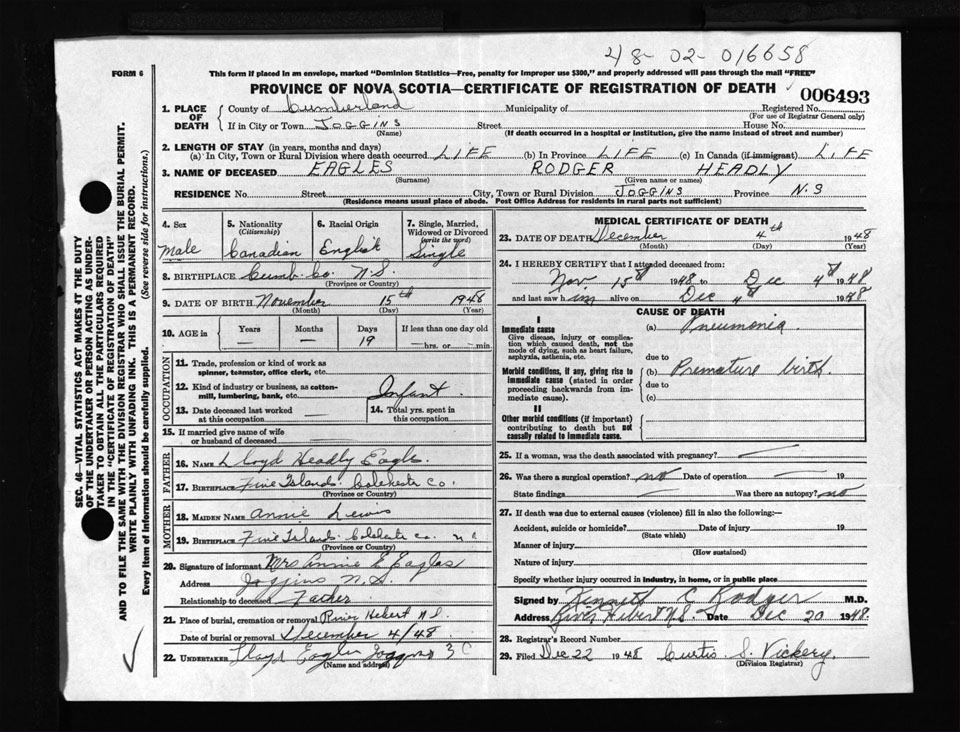 48-02-016658
FORM 6
This form if placed in an envelope, marked "Dominion Statistics—Free, penalty for improper use $300," and properly addressed will pass through the mail "FREE"
PROVINCE OF NOVA SCOTIA—CERTIFICATE OF REGISTRATION OF DEATH 006493
1. PLACE OF DEATH
County of Cumberland Municipality of Registered No.
(For use of Registrar General only)
If in City or Town JOGGINS Street House No.
(Name) (If death occurred in a hospital or institution, give the name instead of street and number)
2. LENGTH OF STAY (in years, months and days)
(a) In City, Town or Rural Division where death occurred LIFE (b) In Province LIFE (c) In Canada (if immigrant) LIFE
3. NAME OF DECEASED EAGLES RODGER HEADLY
(Surname) (Given name or names)
RESIDENCE No. Street City, Town or Rural Division JOGGINS Province N.S
(Residence means usual place of abode. Post Office Address for residents in rural parts not sufficient)
4. Sex
Male
5. Nationality
(Citizenship)
Canadian
6. Racial Origin
English
7. Single, Married, Widowed or Divorced
(write the word)
Single
8. BIRTHPLACE Cumb. Co. N.S.
(Province or Country)
9. DATE OF BIRTH November 15th 1948
(Month) (Day) (Year)
10. AGE in Years Months Days If less than one day old
— — 19 —hrs. or —min.
OCCUPATION
11. Trade, profession or kind of work as
spinner, teamster, office clerk, etc.
12. Kind of industry or business, as cotton-
mill, lumbering, bank, etc. Infant
13. Date deceased last worked
at this occupation —
14. Total yrs. spent in
this occupation —
15. If married give name of wife
or husband of deceased —
FATHER
16. NAME Lloyd Headly Eagle
17. BIRTHPLACE Five Islands Colchester Co.
(Province or Country)
MOTHER
18. MAIDEN NAME Annie Lewis
19. BIRTHPLACE Five Islands Colchester Co.
(Province or Country)
20. Signature of informant Mrs Annie E Eagles
Address Joggins N.S.
Relationship to deceased Father
21. Place of burial, cremation or removal River Hebert N.S.
Date of burial or removal December 4/48
22. UNDERTAKER Lloyd Eagles Joggins
(Name and address)
MEDICAL CERTIFICATE OF DEATH
23. DATE OF DEATH December 4th 1948
(Month) (Day) (Year)
24. I HEREBY CERTIFY that I attended deceased from:
Nov. 15th 1948 to Dec 4th 1948
and last saw him alive on Dec 4th 1948
CAUSE OF DEATH
I
Immediate cause (a) Pneumonia
Give disease, injury or complica-
tion which caused death, not the
mode of dying, such as heart failure,
asphyxia, asthenia, etc. due to
Morbid conditions, if any, giving rise to (b) Premature birth.
immediate cause (stated in order due to
proceeding backwards from im-
mediate cause). (c)
II
Other morbid conditions (if important)
contributing to death but not
causally related to immediate cause.
25. If a woman, was the death associated with pregnancy? —
26. Was there a surgical operation? no Date of operation — 19
State findings — Was there an autopsy? no
27. If death was due to external causes (violence) fill in also the following:—
Accident, suicide or homicide? Date of injury 19
(State which)
Manner of injury
(How sustained)
Nature of injury
Specify whether injury occurred in industry, in home, or in public place
Signed by Kenneth C Rodger M.D.
Address River Hebert N.S. Date Dec 20 1948.
28. Registrar's Record Number
29. Filed Dec 22 1948 Curtis S. Vickery.
(Division Registrar)
SEC. 46—VITAL STATISTICS ACT MAKES IT THE DUTY
OF THE UNDERTAKER OR PERSON ACTING AS UNDER-
TAKER TO OBTAIN ALL THE PARTICULARS REQUIRED
IN THE "CERTIFICATE OF REGISTRATION OF DEATH"
AND TO FILE THE SAME WITH THE DIVISION REGISTRAR WHO SHALL ISSUE THE BURIAL PERMIT.
WRITE PLAINLY WITH UNFADING INK. THIS IS A PERMANENT RECORD.
Every item of information should be carefully supplied. (See reverse side for instructions.)